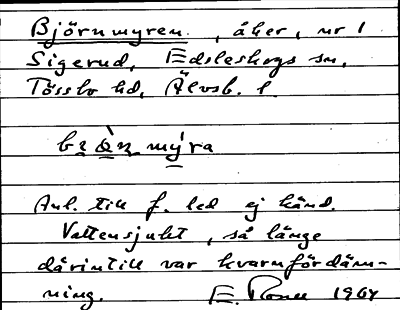 Björnmyren, åker, nr 1
Sigerud, Edsleskogs sn,
Tössbo hd, Älvsb. l.
mýra
Anl. till f. led ej känd.
Vattensjukt, så länge
därintill var kvarnfördäm-
ning. E. 1964